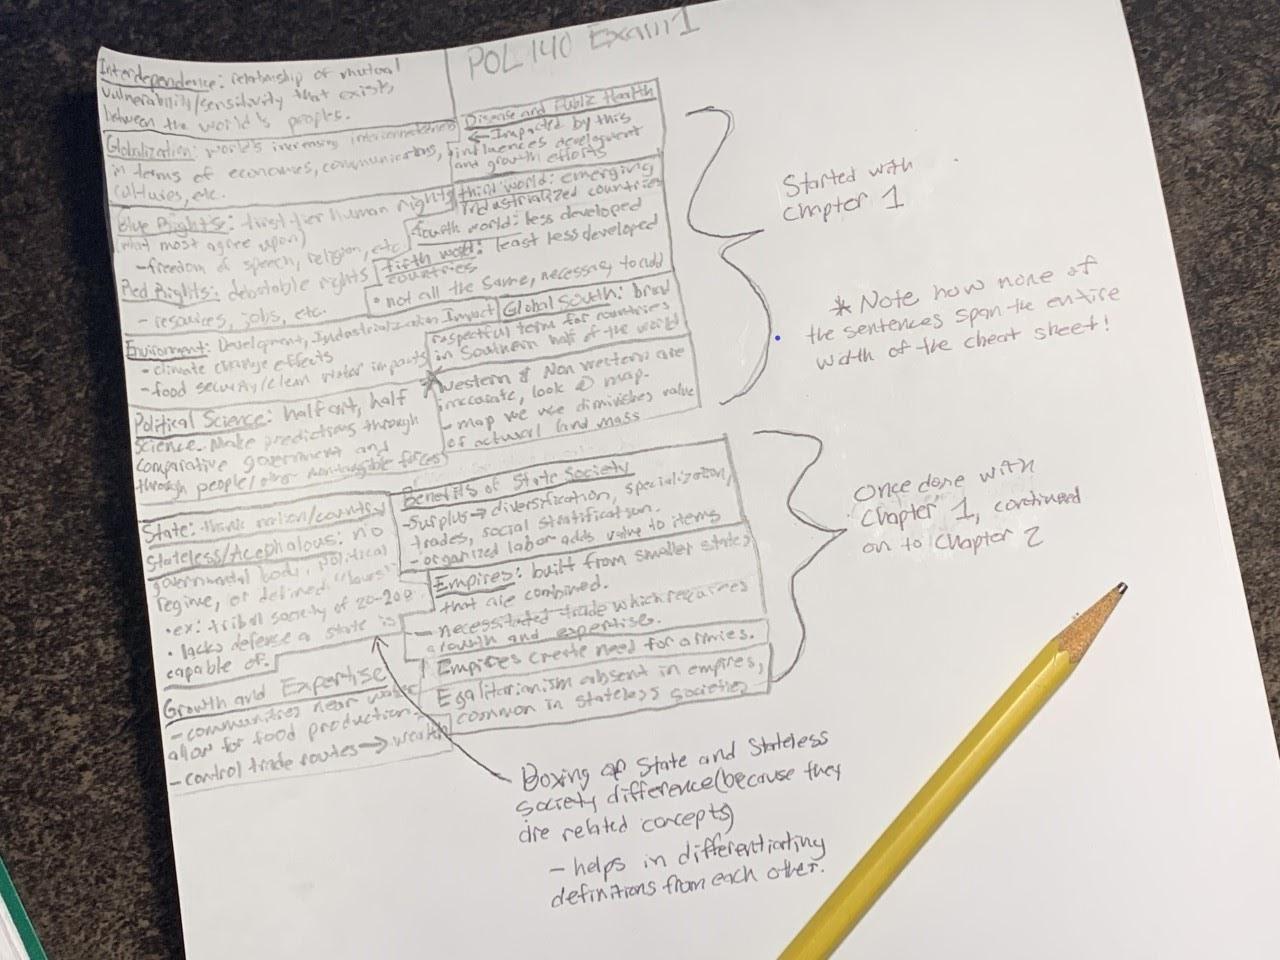 POL 140 Exam 1
Interdependence: relationship of mutual
vulnerability/sensitivity that exists
between the world's peoples.
Globalization: world's increasing interconnectedness
in terms of economies, communications,
cultures, etc.
Blue Rights: first tier human rights
(what most agree upon)
- freedom of speech, religion, etc.
Red Rights: debatable rights
- resources, jobs, etc.
Enviorment: Development, Industrialization Impact
- climate change effects
- food security/clean water impacts
Political Science: half art, half
science. Make predictions through
comparative government and
through people/other nontangible forces
Disease and Public Health
← Impacted by this
influences development
and growth efforts
third world: emerging
industrialized countries
fourth world: less developed
fifth world: least less developed
countries
• not all the same, necessary to add
Global South: broad
respectful term for countries
in Southern half of the world
Western & Non western are
inaccurate, look @ map.
- map we use diminishes value
of actual land mass
State: think nation/country
Stateless/Acephalous: no
governmental body, political
regime, or defined "laws"
• ex: tribal society of 20-200
• lacks defense a state is
capable of.
Growth and Expertise
- communities near water
allow for food production
- control trade routes → wealth
Benefits of State Society
- Surplus → diversification, specialization,
trades, social stratification.
- organized labor adds value to items
Empires: built from smaller states
that are combined.
- necessitated trade which requires
growth and expertise.
Empires create need for armies.
Egalitarianism absent in empires,
common in stateless societies
Started with
chpter 1
* Note how none of
the sentences span the entire
width of the cheat sheet!
Once done with
chapter 1, continued
on to chapter 2
Boxing of State and Stateless
society difference (because they
are related concepts)
- helps in differentiating
definitions from each other.